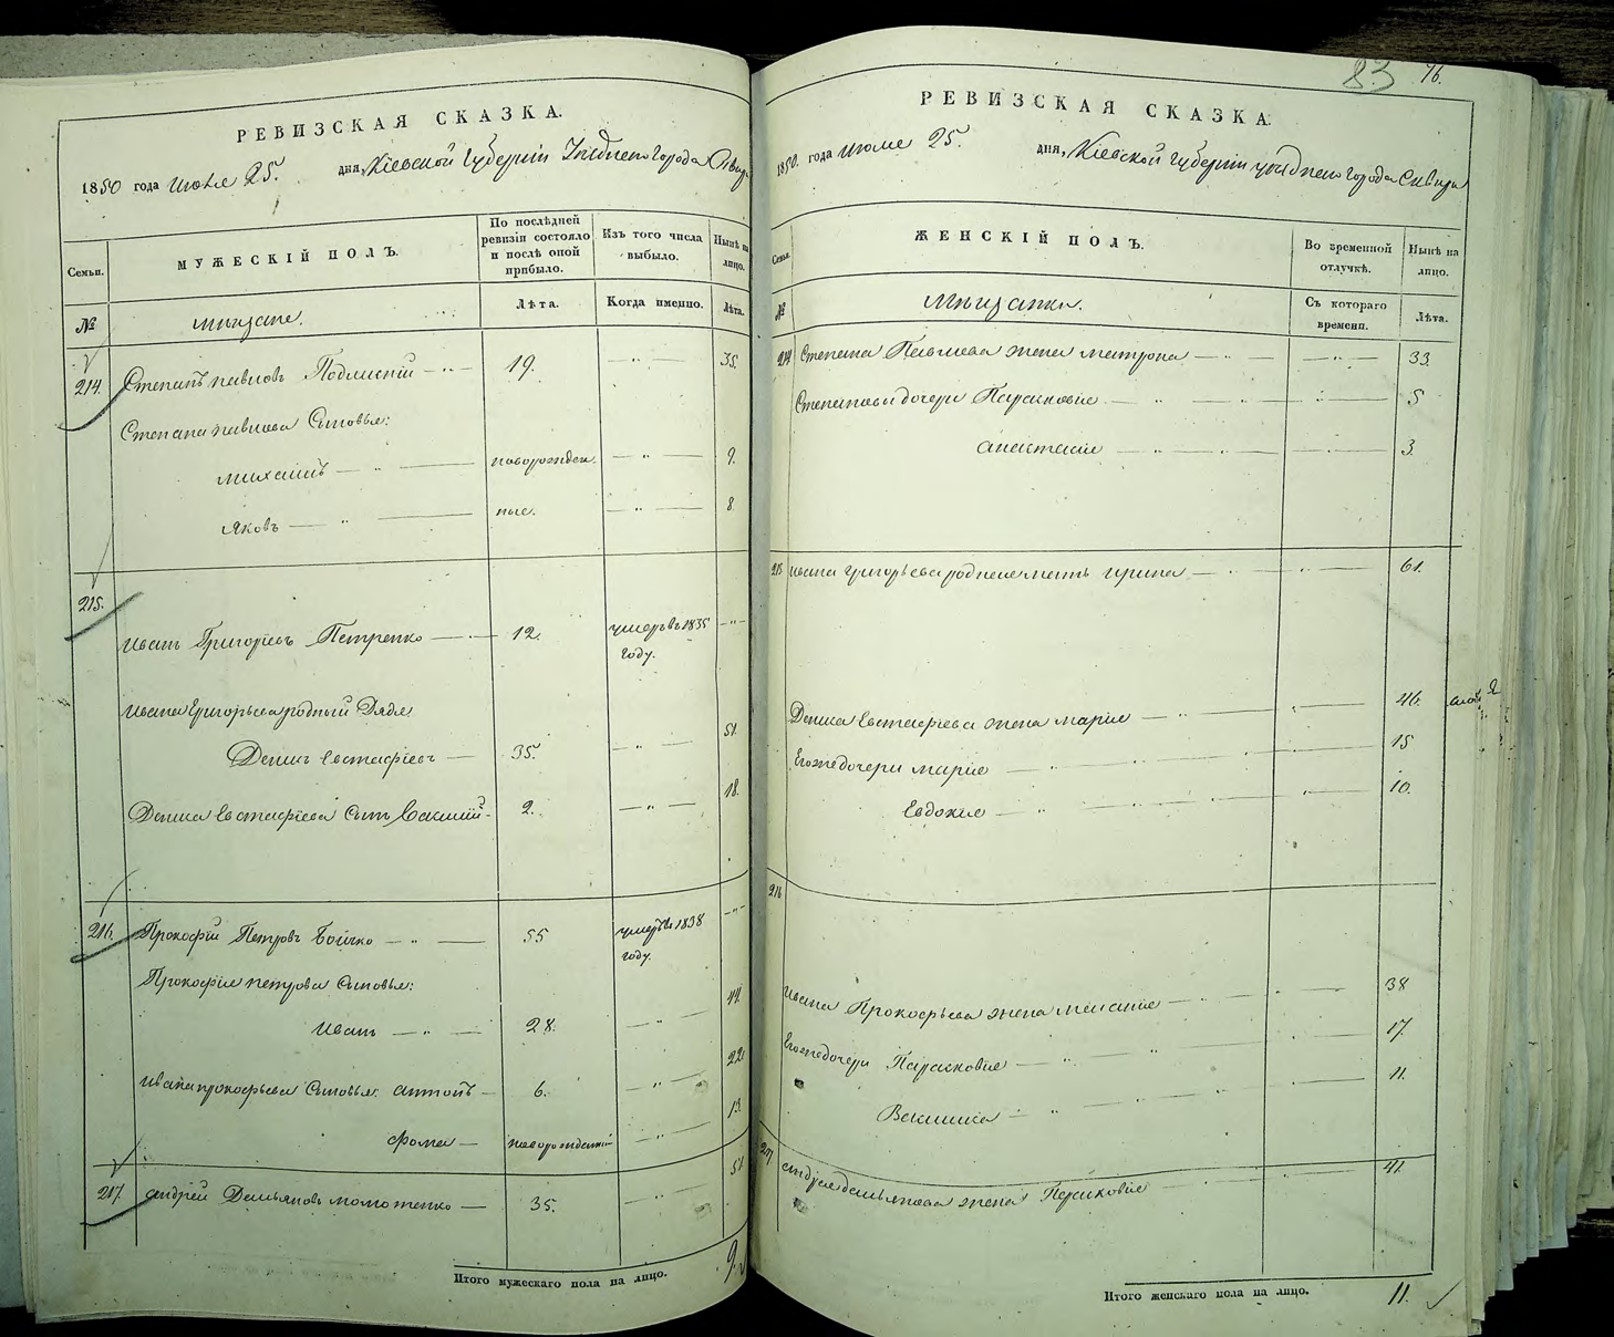 РЕВИЗСКАЯ СКАЗКА.
1850 года Июля 25. дня, Кіевской Губерніи Уѣзднего Города
Семьи.
МУЖЕСКІЙ ПОЛЪ.
По послѣдней ревизіи состояло и послѣ оной прибыло.
Изъ того числа выбыло.
Нынѣ на лицо.
№
мѣщане.
Лѣта.
Когда именно.
Лѣта.
214. Степанъ павловъ — " — 19. — " — 35.
Степана павлова Сыновья:
михаилъ — " — новорожден. — " — 9.
Яковъ — " — ные. — " — 8.
215.
Иванъ Григорьевъ Петренко — " — 12. умеръ въ 1835 году. — " —
Ивана Григорьева родный Дядя
Денисъ Евстафіевъ — 35. — " — 51.
Дениса Евстафіева Сынъ 2. — " — 18.
216. Прокофій Петровъ Бойчко — " — 55 умеръ въ 1838 году. — " —
Прокофія петрова Сыновья:
Иванъ — " — 28. — " — 44.
Ивана прокофьева Сыновья: антонъ — 6. — " — 22.
фома — новорожденній — " — 13.
217. андрей Демьяновъ — 35. — " — 51.
Итого мужескаго пола на лицо. 9.
83 76.
РЕВИЗСКАЯ СКАЗКА.
1850. года Июля 25. дня, Кіевской Губерніи уѣзднего Города Сквиры
Семьи.
ЖЕНСКІЙ ПОЛЪ.
Во временной отлучкѣ.
Нынѣ на лицо.
№
Мѣщанки.
Съ котораго времени.
Лѣта.
214 Степана Павлова жена матрона — " — — " — 33.
Степановы дочери Парасковія — " — 5
анастасія — " — 3.
215 Ивана Григорьева родная мать Ирина — " — 61.
Дениса Евстафіева жена марія — " — 46.
Его же дочери марія — " — 15
Евдокія — " — 10.
216
Ивана Прокофьева жена — " — 38
Его же дочери Парасковія — " — 17.
— " — 11.
217 андрея демьянова жена Парасковія — " — 41.
Итого женскаго пола на лицо. 11.